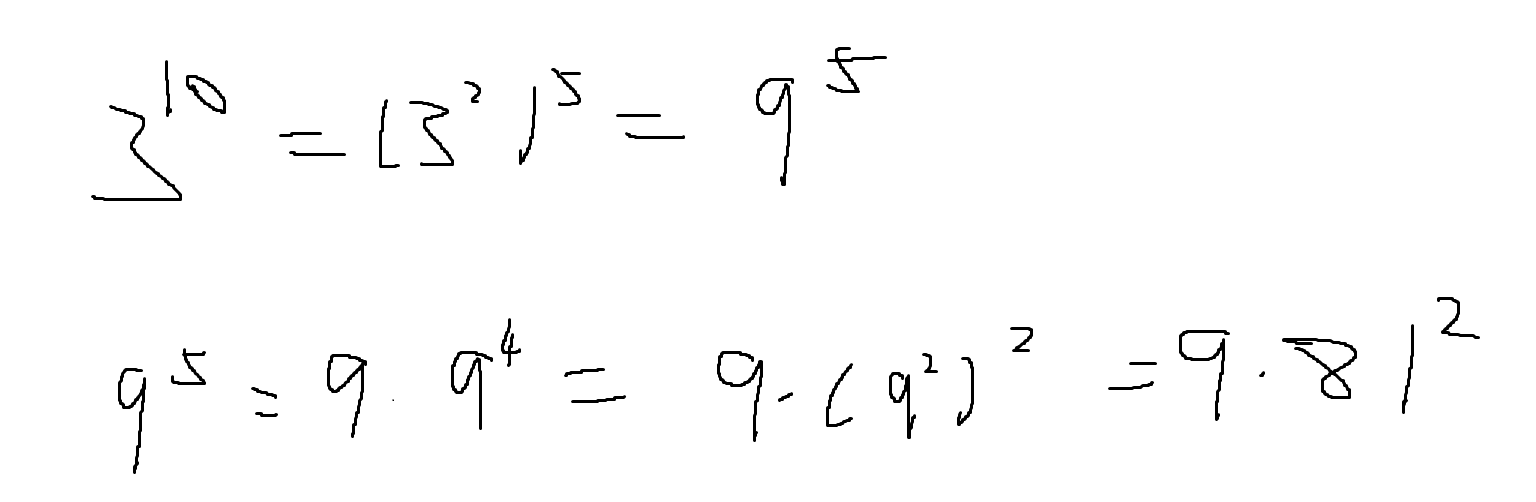 3¹⁰ = (3²)⁵ = 9⁵
9⁵ = 9 · 9⁴ = 9 · (9²)² = 9 · 81²